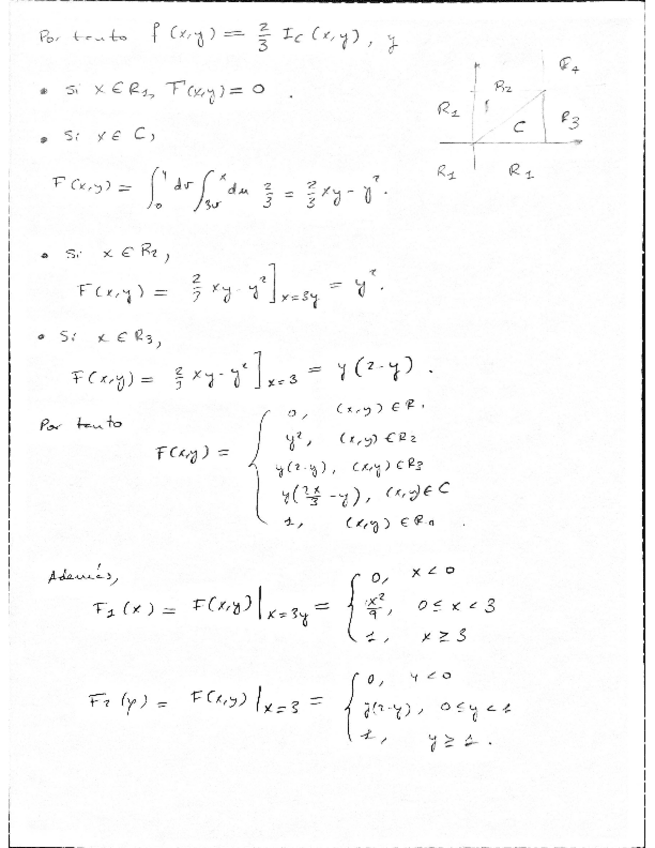 Por tanto f(x,y) = 2/3 I_C (x,y), y
• Si x ∈ R1, F(x,y) = 0.
• Si x ∈ C,
F(x,y) = ∫_0^y dv ∫_{3v}^x du 2/3 = 2/3 xy - y².
R1 R2 R4
C R3
R1 R1
• Si x ∈ R2,
F(x,y) = 2/3 xy - y² ]_{x=3y} = y².
• Si x ∈ R3,
F(x,y) = 2/3 xy - y² ]_{x=3} = y(2-y).
Por tanto
F(x,y) = {
0, (x,y) ∈ R1
y², (x,y) ∈ R2
y(2-y), (x,y) ∈ R3
y(2x/3 - y), (x,y) ∈ C
1, (x,y) ∈ R4.
Además,
F1(x) = F(x,y)|_{x=3y} = {
0, x < 0
x²/9, 0 ≤ x < 3
1, x ≥ 3
F2(y) = F(x,y)|_{x=3} = {
0, y < 0
y(2-y), 0 ≤ y < 1
1, y ≥ 1.